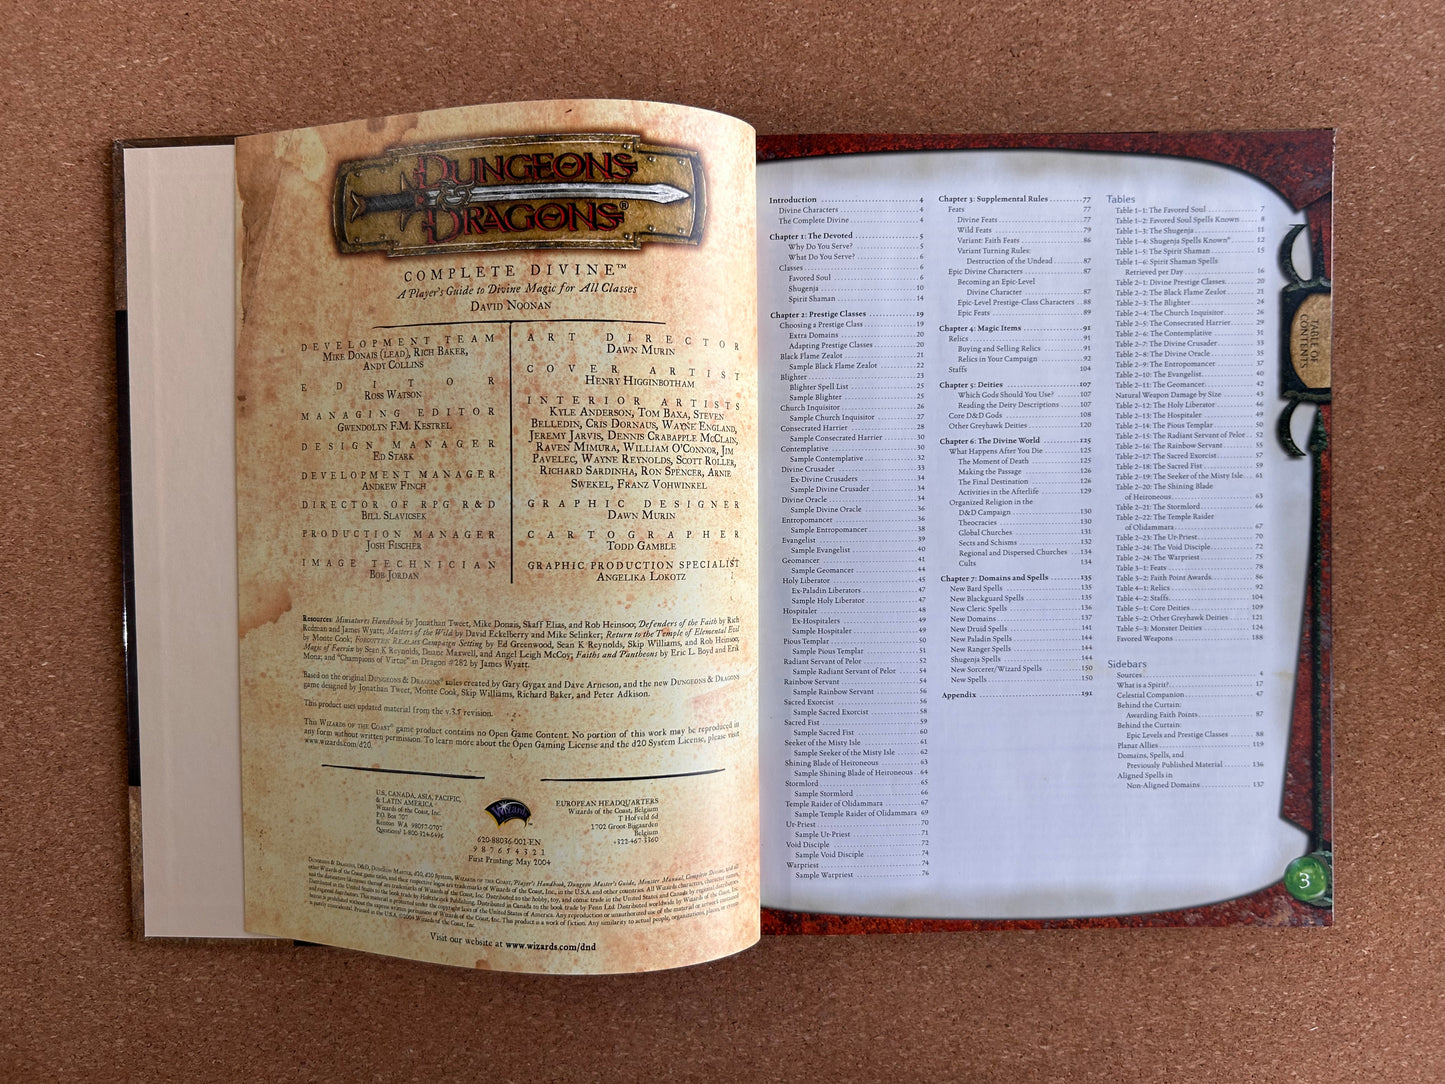 DUNGEONS
DRAGONS®
COMPLETE DIVINE™
A Player's Guide to Divine Magic for All Classes
David Noonan
DEVELOPMENT TEAM
Mike Donais (Lead), Rich Baker,
Andy Collins
EDITOR
Ross Watson
MANAGING EDITOR
Gwendolyn F.M. Kestrel
DESIGN MANAGER
Ed Stark
DEVELOPMENT MANAGER
Andrew Finch
DIRECTOR OF RPG R&D
Bill Slavicsek
PRODUCTION MANAGER
Josh Fischer
IMAGE TECHNICIAN
Bob Jordan
ART DIRECTOR
Dawn Murin
COVER ARTIST
Henry Higginbotham
INTERIOR ARTISTS
Kyle Anderson, Tom Baxa, Steven
Belledin, Cris Dornaus, Wayne England,
Jeremy Jarvis, Dennis Crabapple McClain,
Raven Mimura, William O'Connor, Jim
Pavelec, Wayne Reynolds, Scott Roller,
Richard Sardinha, Ron Spencer, Arnie
Swekel, Franz Vohwinkel
GRAPHIC DESIGNER
Dawn Murin
CARTOGRAPHER
Todd Gamble
GRAPHIC PRODUCTION SPECIALIST
Angelika Lokotz
Resources: Miniatures Handbook by Jonathan Tweet, Mike Donais, Skaff Elias, and Rob Heinsoo; Defenders of the Faith by Rich
Redman and James Wyatt; Masters of the Wild by David Eckelberry and Mike Selinker; Return to the Temple of Elemental Evil
by Monte Cook; Forgotten Realms Campaign Setting by Ed Greenwood, Sean K Reynolds, Skip Williams, and Rob Heinsoo;
Magic of Faerûn by Sean K Reynolds, Duane Maxwell, and Angel Leigh McCoy; Faiths and Pantheons by Eric L. Boyd and Erik
Mona; and "Champions of Virtue" in Dragon #282 by James Wyatt.
Based on the original Dungeons & Dragons® rules created by Gary Gygax and Dave Arneson, and the new Dungeons & Dragons
game designed by Jonathan Tweet, Monte Cook, Skip Williams, Richard Baker, and Peter Adkison.
This product uses updated material from the v.3.5 revision.
This Wizards of the Coast® game product contains no Open Game Content. No portion of this work may be reproduced in
any form without written permission. To learn more about the Open Gaming License and the d20 System License, please visit
www.wizards.com/d20.
U.S., CANADA, ASIA, PACIFIC,
& LATIN AMERICA
Wizards of the Coast, Inc.
P.O. Box 707
Renton WA 98057-0707
Questions? 1-800-324-6496
Wizards
620-88036-001-EN
9 8 7 6 5 4 3 2 1
First Printing: May 2004
EUROPEAN HEADQUARTERS
Wizards of the Coast, Belgium
T Hofveld 6d
1702 Groot-Bijgaarden
Belgium
+322-467-3360
Visit our website at www.wizards.com/dnd
Introduction 4
Divine Characters 4
The Complete Divine 4
Chapter 1: The Devoted 5
Why Do You Serve? 5
What Do You Serve? 6
Classes 6
Favored Soul 6
Shugenja 10
Spirit Shaman 14
Chapter 2: Prestige Classes 19
Choosing a Prestige Class 19
Extra Domains 20
Adapting Prestige Classes 20
Black Flame Zealot 21
Sample Black Flame Zealot 22
Blighter 23
Blighter Spell List 25
Sample Blighter 25
Church Inquisitor 26
Sample Church Inquisitor 27
Consecrated Harrier 28
Sample Consecrated Harrier 30
Contemplative 30
Sample Contemplative 32
Divine Crusader 33
Ex-Divine Crusaders 34
Sample Divine Crusader 34
Divine Oracle 34
Sample Divine Oracle 36
Entropomancer 36
Sample Entropomancer 38
Evangelist 39
Sample Evangelist 40
Geomancer 41
Sample Geomancer 44
Holy Liberator 45
Ex-Paladin Liberators 47
Sample Holy Liberator 47
Hospitaler 48
Ex-Hospitalers 49
Sample Hospitaler 49
Pious Templar 50
Sample Pious Templar 51
Radiant Servant of Pelor 52
Sample Radiant Servant of Pelor 54
Rainbow Servant 54
Sample Rainbow Servant 56
Sacred Exorcist 56
Sample Sacred Exorcist 58
Sacred Fist 59
Sample Sacred Fist 60
Seeker of the Misty Isle 61
Sample Seeker of the Misty Isle 62
Shining Blade of Heironeous 63
Sample Shining Blade of Heironeous 64
Stormlord 65
Sample Stormlord 66
Temple Raider of Olidammara 67
Sample Temple Raider of Olidammara 69
Ur-Priest 70
Sample Ur-Priest 71
Void Disciple 72
Sample Void Disciple 74
Warpriest 74
Sample Warpriest 76
Chapter 3: Supplemental Rules 77
Feats 77
Divine Feats 77
Wild Feats 79
Variant: Faith Feats 86
Variant Turning Rules:
Destruction of the Undead 87
Epic Divine Characters 87
Becoming an Epic-Level
Divine Character 87
Epic-Level Prestige-Class Characters 88
Epic Feats 89
Chapter 4: Magic Items 91
Relics 91
Buying and Selling Relics 91
Relics in Your Campaign 92
Staffs 104
Chapter 5: Deities 107
Which Gods Should You Use? 107
Reading the Deity Descriptions 107
Core D&D Gods 108
Other Greyhawk Deities 120
Chapter 6: The Divine World 125
What Happens After You Die 125
The Moment of Death 125
Making the Passage 126
The Final Destination 126
Activities in the Afterlife 129
Organized Religion in the
D&D Campaign 130
Theocracies 130
Global Churches 131
Sects and Schisms 132
Regional and Dispersed Churches 134
Cults 134
Chapter 7: Domains and Spells 135
New Bard Spells 135
New Blackguard Spells 135
New Cleric Spells 136
New Domains 137
New Druid Spells 141
New Paladin Spells 144
New Ranger Spells 144
Shugenja Spells 144
New Sorcerer/Wizard Spells 150
New Spells 150
Appendix 191
Tables
Table 1–1: The Favored Soul 7
Table 1–2: Favored Soul Spells Known 8
Table 1–3: The Shugenja 11
Table 1–4: Shugenja Spells Known 12
Table 1–5: The Spirit Shaman 15
Table 1–6: Spirit Shaman Spells
Retrieved per Day 16
Table 2–1: Divine Prestige Classes 20
Table 2–2: The Black Flame Zealot 21
Table 2–3: The Blighter 24
Table 2–4: The Church Inquisitor 26
Table 2–5: The Consecrated Harrier 29
Table 2–6: The Contemplative 31
Table 2–7: The Divine Crusader 33
Table 2–8: The Divine Oracle 35
Table 2–9: The Entropomancer 37
Table 2–10: The Evangelist 40
Table 2–11: The Geomancer 42
Natural Weapon Damage by Size 43
Table 2–12: The Holy Liberator 46
Table 2–13: The Hospitaler 49
Table 2–14: The Pious Templar 50
Table 2–15: The Radiant Servant of Pelor 52
Table 2–16: The Rainbow Servant 55
Table 2–17: The Sacred Exorcist 57
Table 2–18: The Sacred Fist 59
Table 2–19: The Seeker of the Misty Isle 61
Table 2–20: The Shining Blade
of Heironeous 63
Table 2–21: The Stormlord 66
Table 2–22: The Temple Raider
of Olidammara 67
Table 2–23: The Ur-Priest 70
Table 2–24: The Void Disciple 72
Table 2–24: The Warpriest 75
Table 3–1: Feats 78
Table 3–2: Faith Point Awards 86
Table 4–1: Relics 92
Table 4–2: Staffs 104
Table 5–1: Core Deities 109
Table 5–2: Other Greyhawk Deities 121
Table 5–3: Monster Deities 124
Favored Weapons 188
Sidebars
Sources 4
What is a Spirit? 17
Celestial Companion 47
Behind the Curtain:
Awarding Faith Points 87
Behind the Curtain:
Epic Levels and Prestige Classes 88
Planar Allies 119
Domains, Spells, and
Previously Published Material 136
Aligned Spells in
Non-Aligned Domains 137
TABLE OF
CONTENTS
3